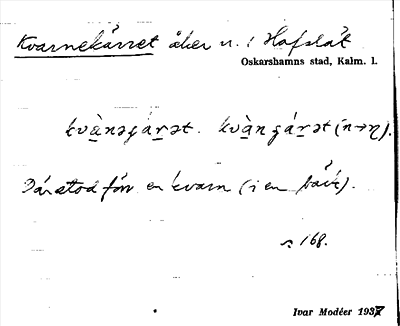 Kvarnekärret åker n. i Hafslät
Oskarshamns stad, Kalm. l.
kvànəɟárət. kvànɟárət (n→ŋ).
Där stod förr en kvarn (i en bäck).
s. 168.
Ivar Modéer 1937